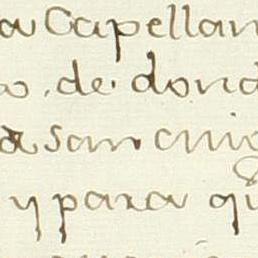 a Capellan
o. de. dond
a san
y para qu